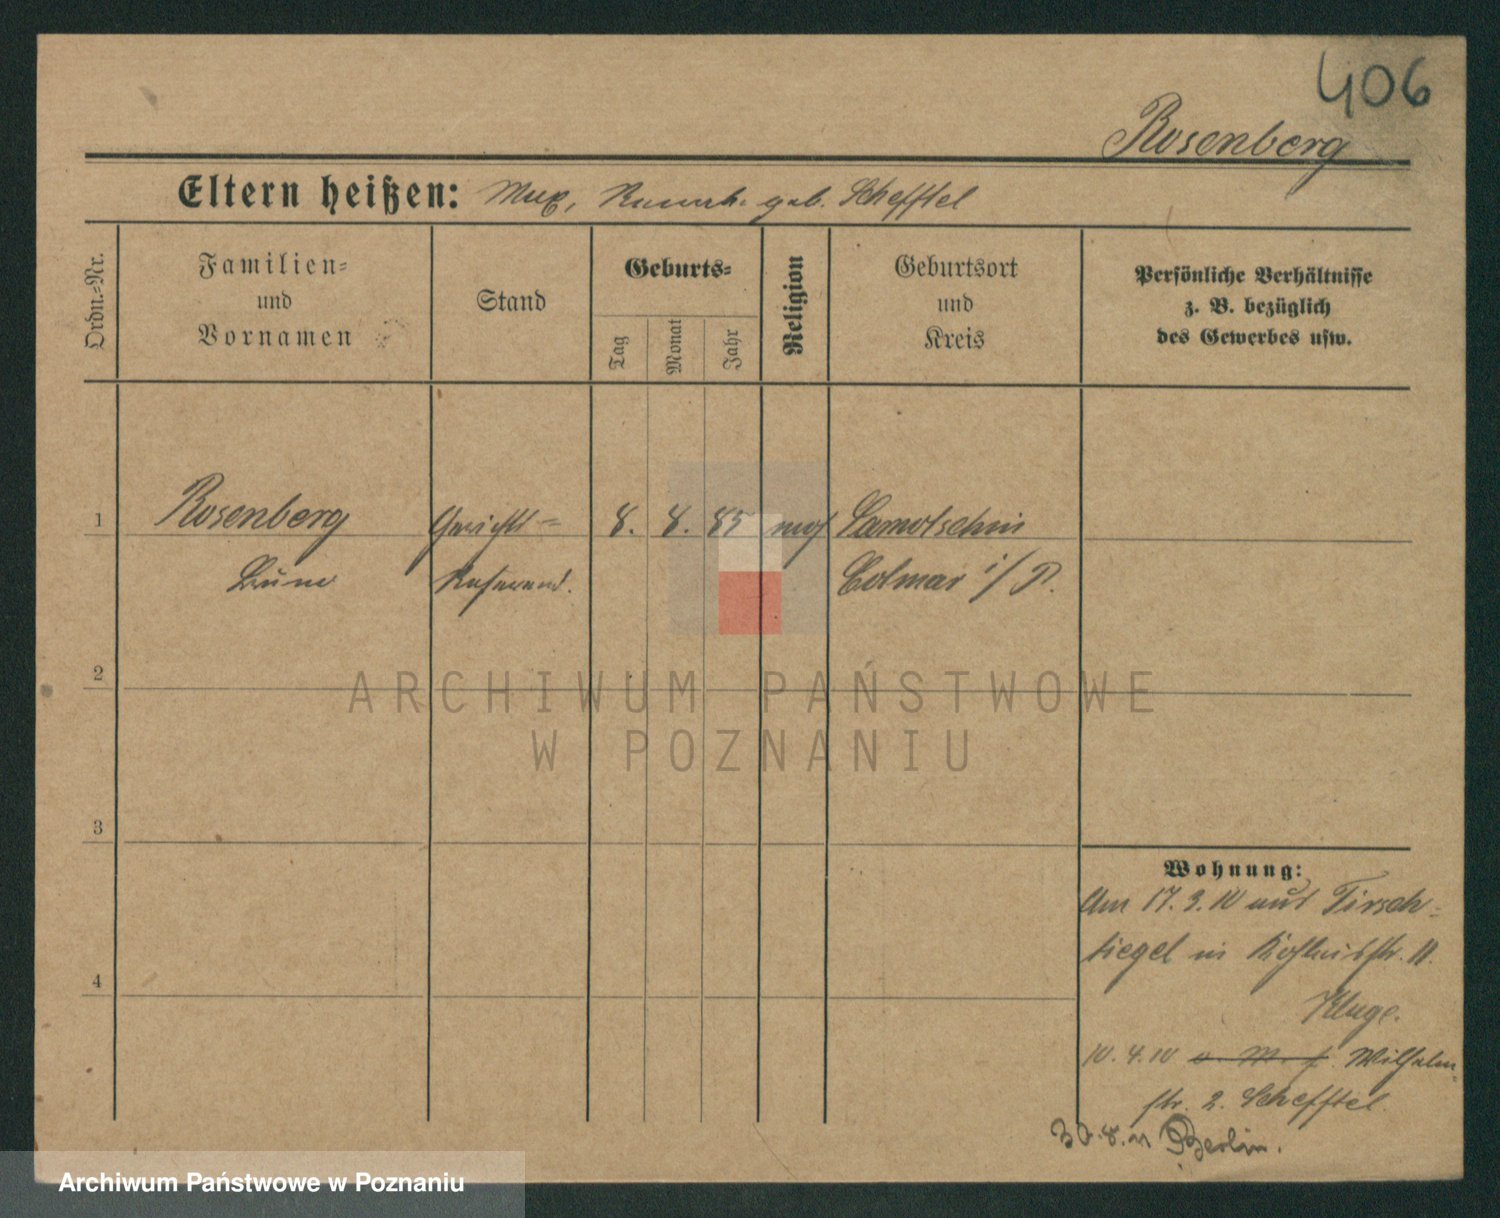 406
Rosenberg
Eltern heißen: Max, geb. Schefftel
Ordn.-Nr.
Familien-
und
Vornamen
Stand
Geburts-
Tag
Monat
Jahr
Religion
Geburtsort
und
Kreis
Persönliche Verhältnisse
z. B. bezüglich
des Gewerbes usw.
1 Rosenberg Gerichts- 8. 8. 85 mos Samotschin
Referend. Colmar i/P.
2
3
4
Wohnung:
Am 17.3.10 aus Tirsch-
tiegel in 11.
Kluge.
10.4.10 Wilhelm-
str. 2. Schefftel
Berlin.
ARCHIWUM PAŃSTWOWE
W POZNANIU
Archiwum Państwowe w Poznaniu